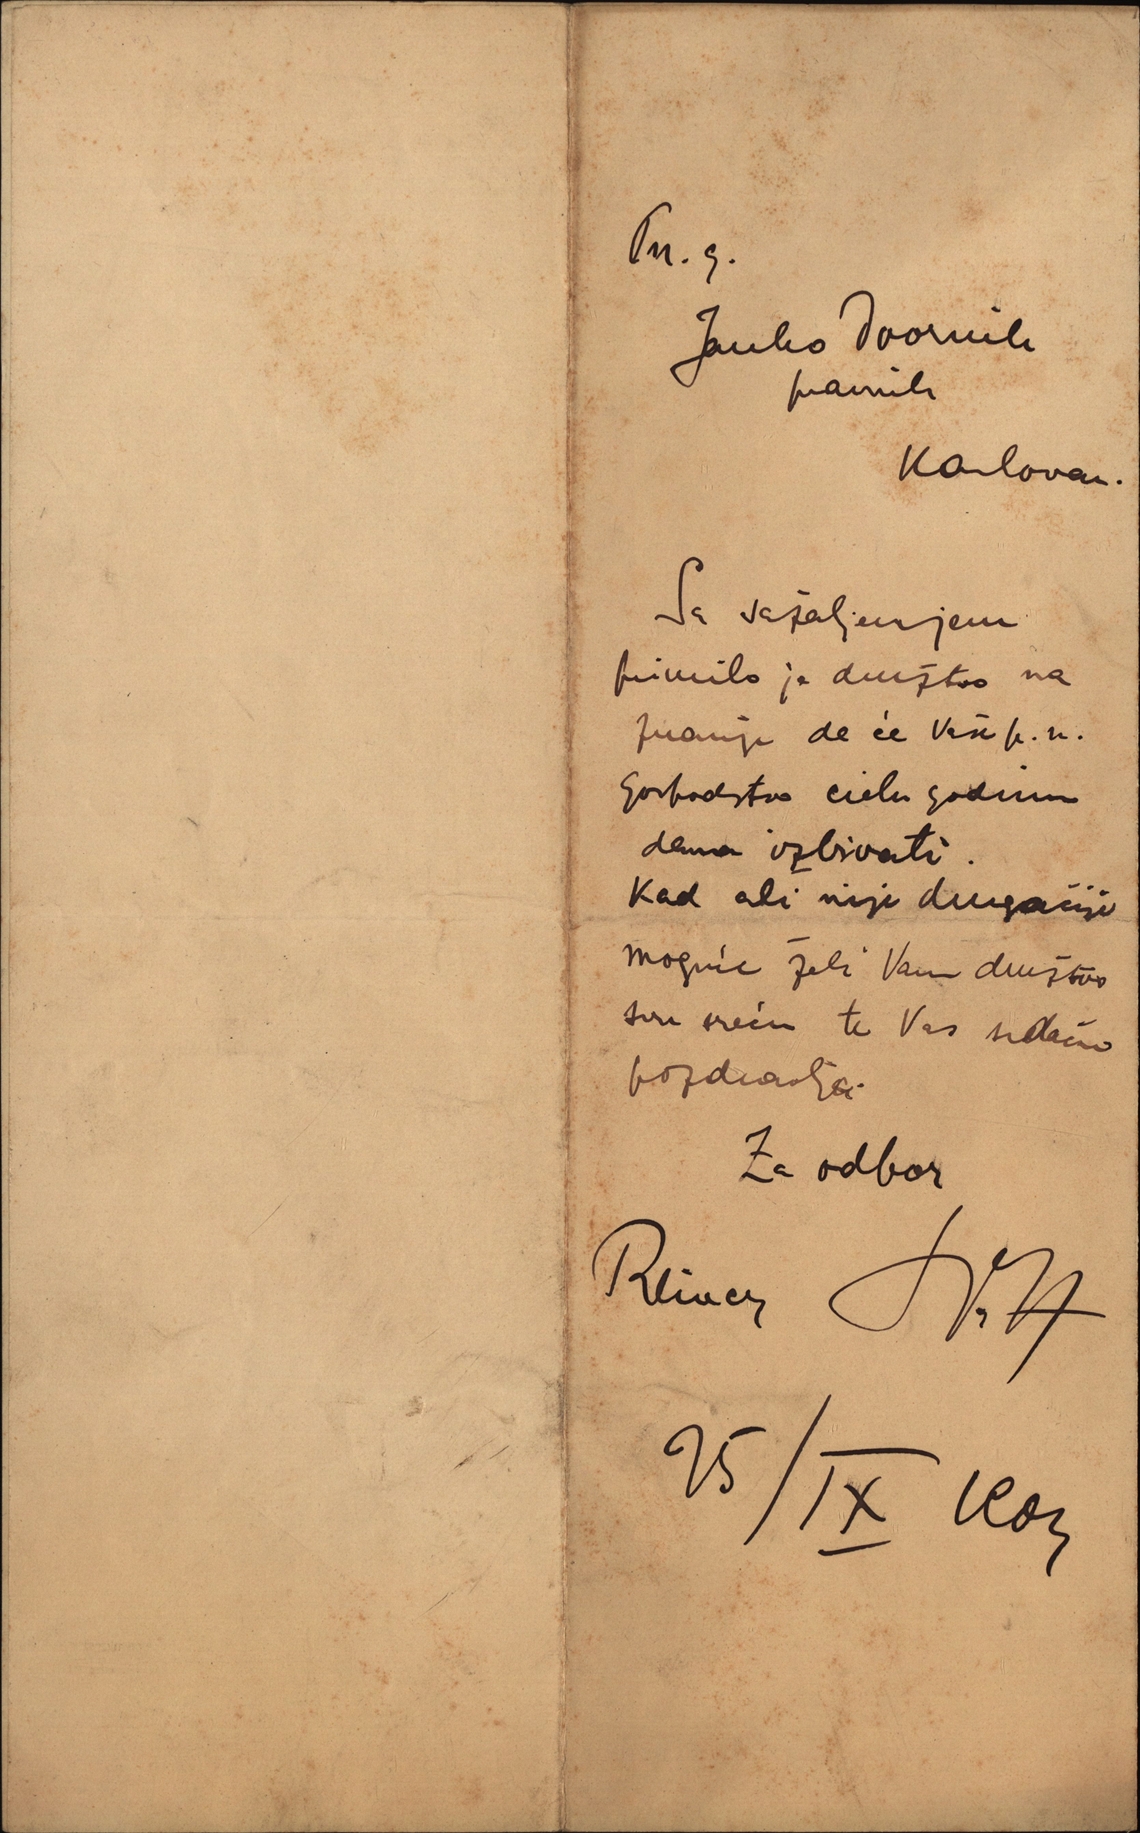 Pn. g.
Janko Dvornik
pravnik
Karlovac.
Sa sažaljenjem
primilo je društvo na
znanje da će Vaše p. n.
Gospodstvo cielu godinu
dana izbivati.
Kad ali nije drugačije
moguće želi Vam društvo
svu sreću te Vas srdačno
pozdravlja.
Za odbor
25/IX